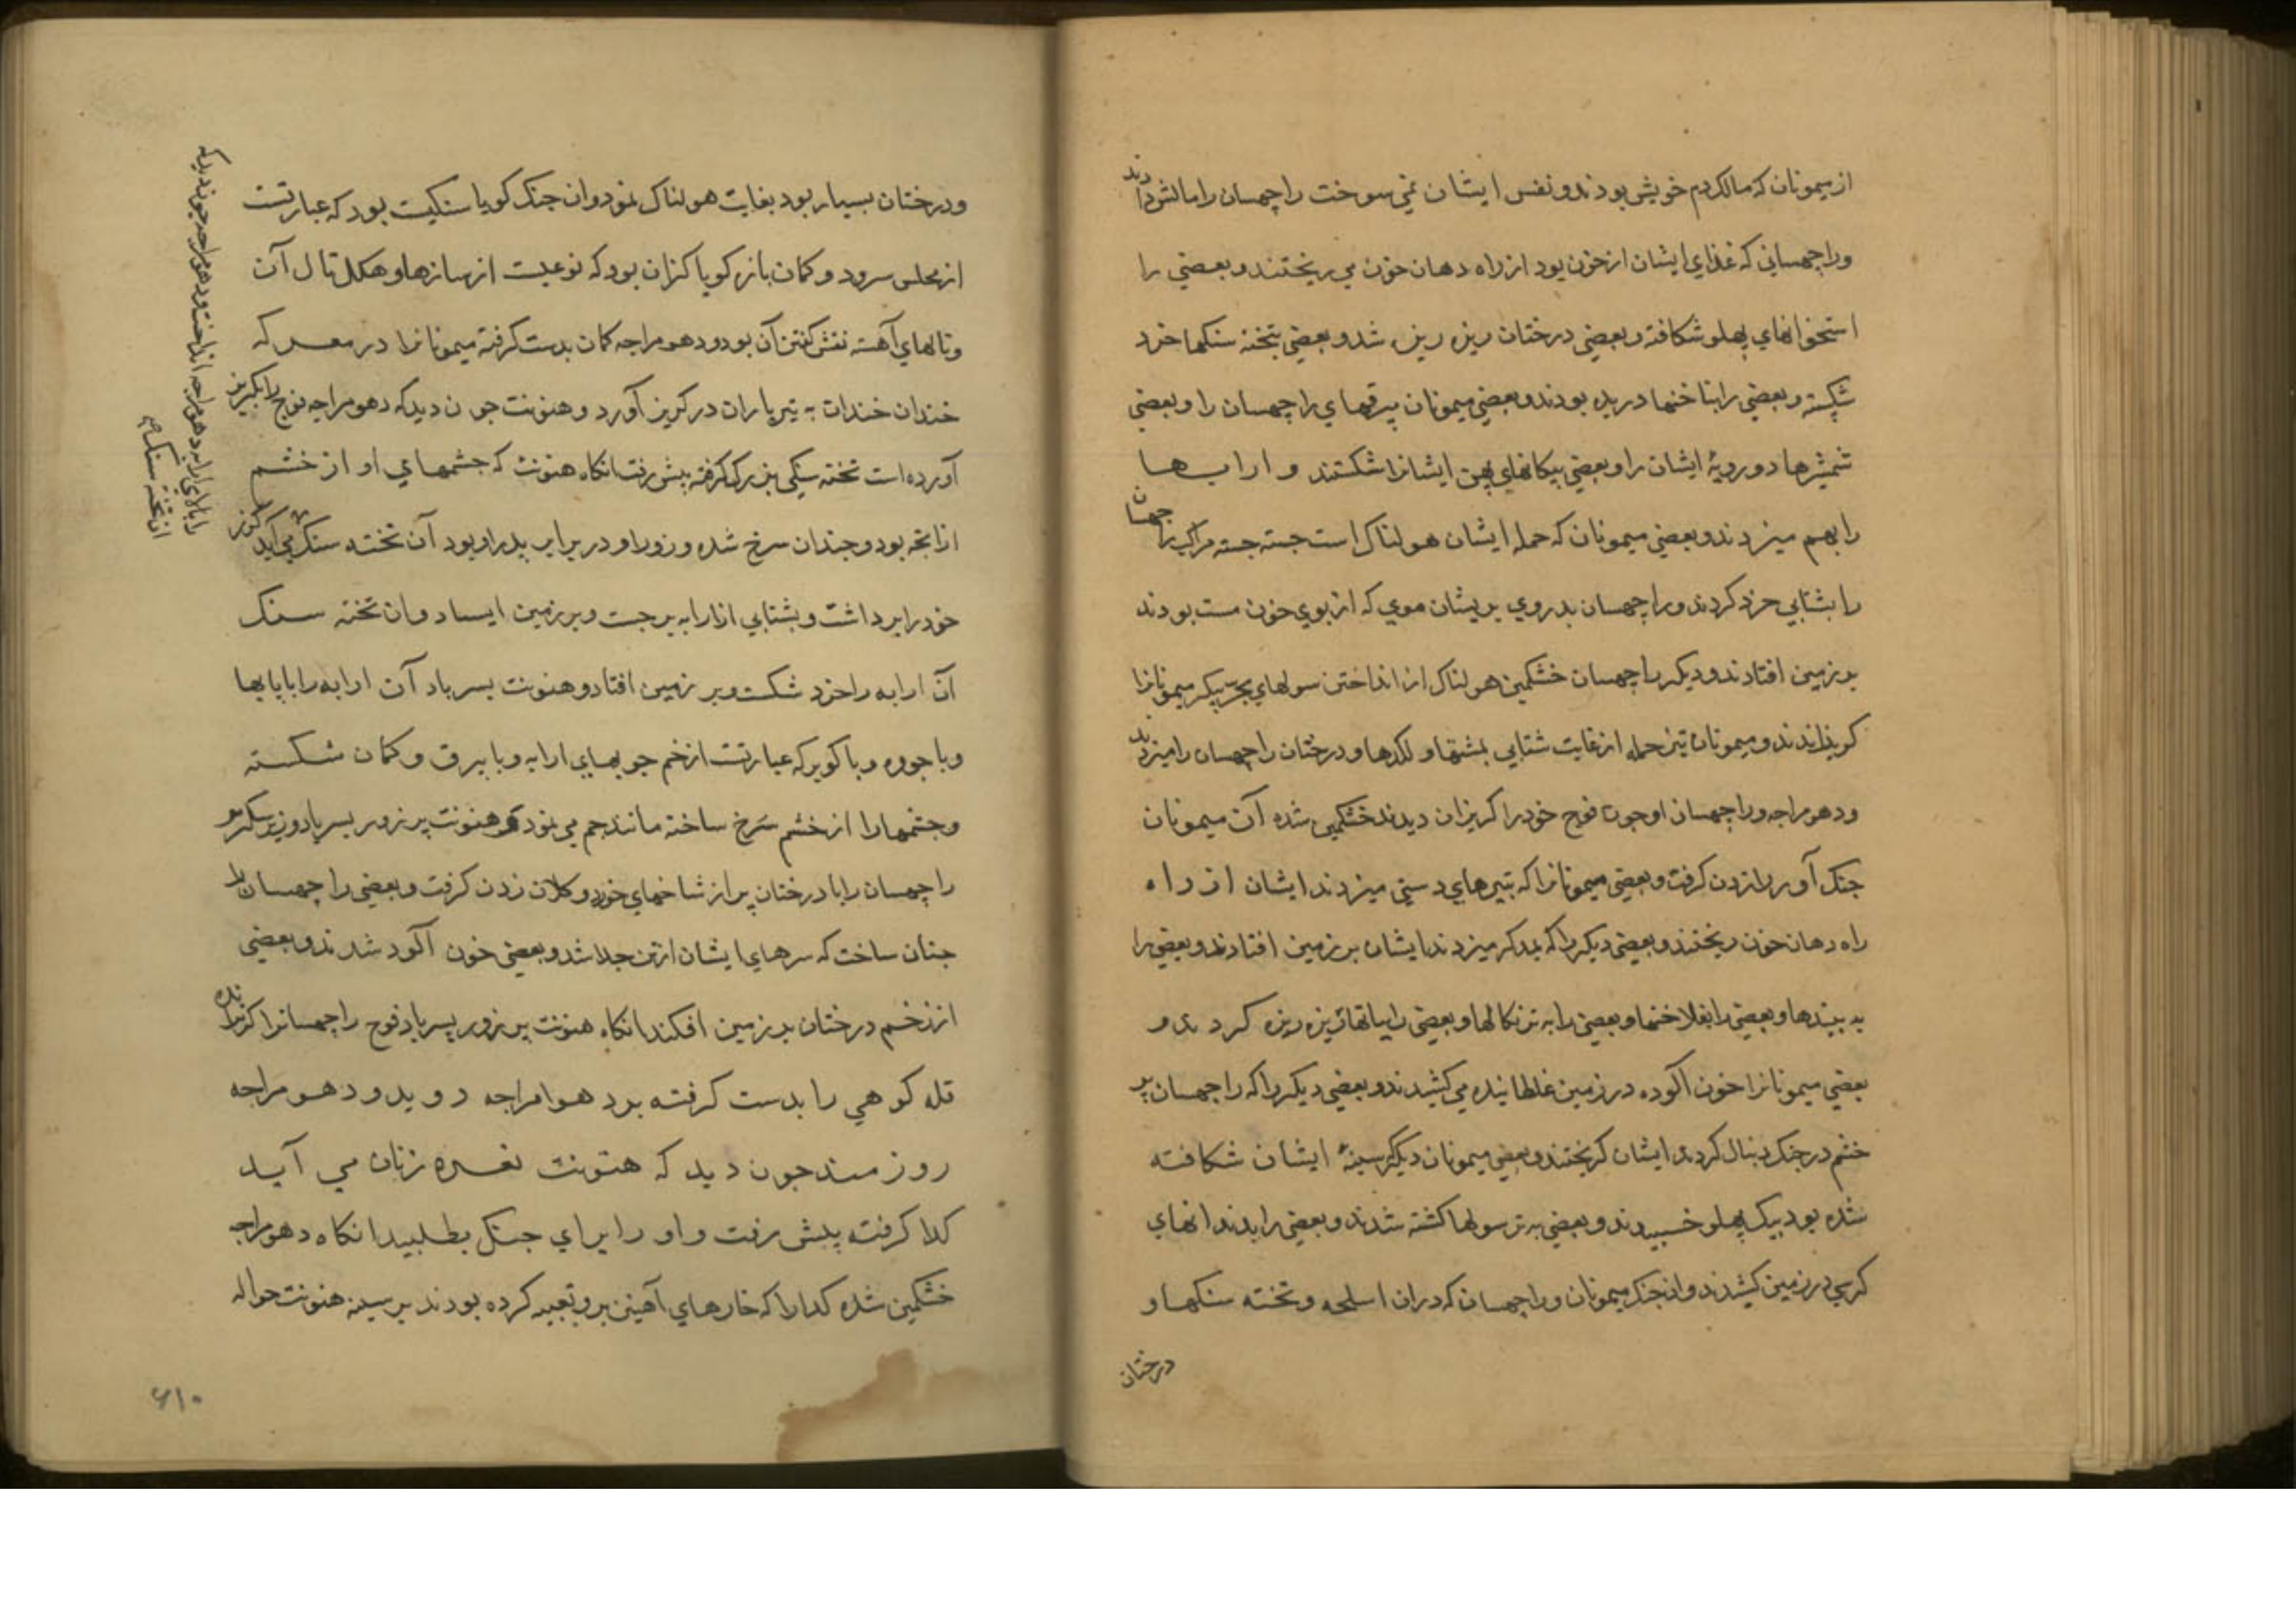 از میمونان که مالک دم خویش بودند و نفس ایشان نمی سوخت راچهسان را مالش دادند
و راچهسانی که غذای ایشان از خون بود از راه دهان خون می ریختند و بعضی را
استخوانهای پهلو شکافته و بعضی درختان ریزه ریزه شد و بعضی بتخته سنکها خرد
شکسته و بعضی را بناخنها دریده بودند و بعضی میمونان بیرقهای راچهسان را و بعضی
شمشیرها دو رویهٔ ایشان را و بعضی پیکانهای پهن ایشانرا شکستند و ارابها
را بهم میزدند و بعضی میمونان که حمله ایشان هولناک است جسته جسته
را بشتابی خرد کردند و راچهسان بدروی پریشان موی که از بوی خون مست بودند
بر زمین افتادند و دیکر راچهسان خشمکین هولناک از انداختن سولهای بجر پیکر میمونانرا
کریزاندند و میمونان تیز حمله از غایت شتابی بمشتها و لکدها و درختان راچهسان را میزدند
و دهومراچه و راچهسان او چون فوج خود را کریزان دیدند خشمکین شده آن میمونان
جنک آور را زدن کرفت و بعضی میمونانرا که بتیرهای دستی میزدند ایشان از راه
راه دهان خون ریختند و بعضی دیکر را که بمدکر میزدند ایشان بر زمین افتادند و بعضی را
به و بعضی را و بعضی را به و بعضی را ریزه ریزه کردند و
بعضی میمونانرا خون آلوده در زمین غلطانیده می کشیدند و بعضی دیکر را که راچهسان پر
خشم در جنک دنبال کردند ایشان کریختند و بعضی میمونان دیکر سینهٔ ایشان شکافته
شده بود بیک پهلو خسبیدند و بعضی به ترسولها کشته شدند و بعضی را بدندانهای
کرمی در زمین کشیدند و ان جنک میمونان و راچهسان که دران اسلحه و تخته سنکها و
درختان
و درختان بسیار بود بغایت هولناک نمود و ان جنک کویا سنکیت بود که عبارتست
از مجلس سرود و کمان بازر کویا کنران بود که نوعیست از سازها و هکل تال آن
و نالهای آهسته نفس کفتن آن بود و دهومراجه کمان بدست کرفته میمونانرا در معرکه
خندان خندان به تیرباران در کریز آورد و هنونت چون دید که دهومراجه فوج را بکریز
آورده است تخته سنکی بزرک کرفته پیش رفت انکاه هنونت که چشمهای او از خشم
ازانچه بود دوچندان سرخ شده و زور او در برابر پدر او بود آن تخته سنک
را بالای ارابه دهومراجه انداخت و دهومراجه چون دید که
ان تخته سنک می آید کرز
خود را برداشت و بشتابی از ارابه برجست و بر زمین ایستاد و ان تخته سنک
آن ارابه را خرد شکست و بر زمین افتاد و هنونت پسر باد آن ارابه را با پایها
و با جووه و با کوبر که عبارتست از خم چوبهای ارابه و با بیرق و کمان شکسته
و چشمها را از خشم سرخ ساخته مانند جم می نمود و هنونت پر زور پسر باد
راچهسان را با درختان پر از شاخهای خورد و کلان زدن کرفت و بعضی راچهسان را
چنان ساخت که سرهای ایشان از تن جدا شد و بعضی خون آلود شدند و بعضی
از زخم درختان بر زمین افکند انکاه هنونت پر زور پسر باد فوج راچهسانرا کریزانده
قله کوهی را بدست کرفته بر دهوامراجه دوید و دهومراجه
روزمند چون دید که هنونت نعره زنان می آید
کدا کرفته پیش رفت و او را برای جنک بطلبید انکاه دهومراجه
خشمکین شده کدا را که خارهای آهنین برو تعبیه کرده بودند بر سینه هنونت حواله
۶۱۰